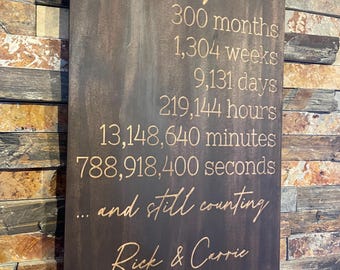 300 months
1,304 weeks
9,131 days
219,144 hours
13,148,640 minutes
788,918,400 seconds
... and still counting
Rick & Carrie